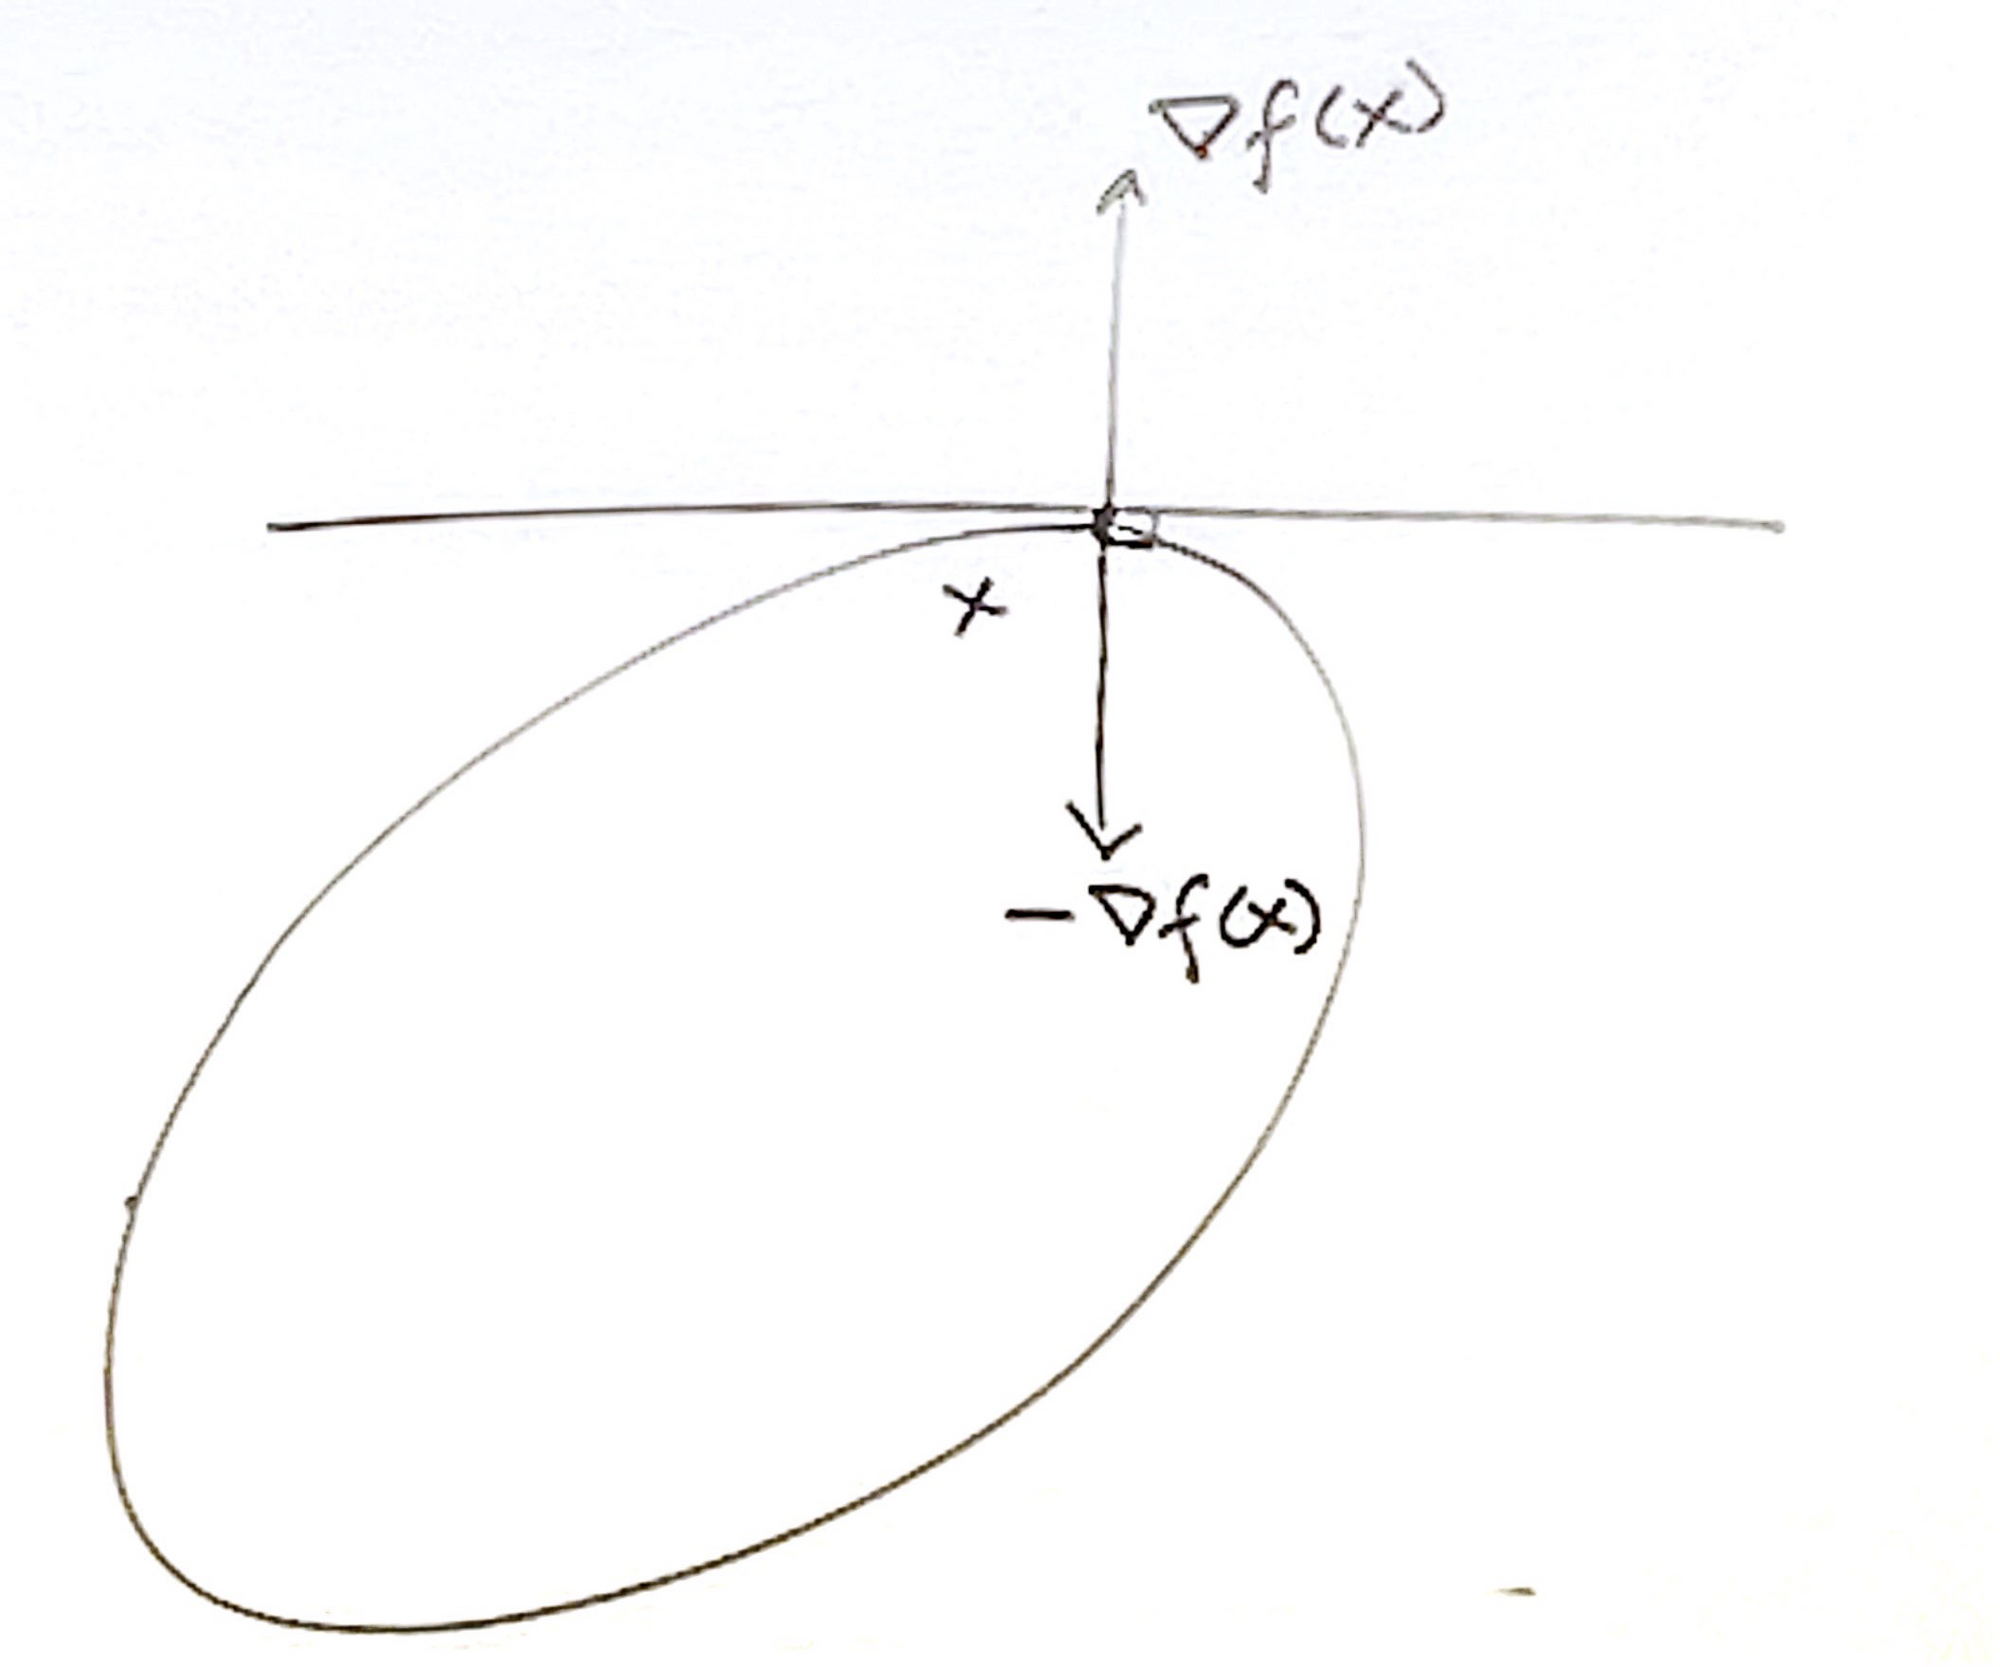 ∇f(x)
x
-∇f(x)